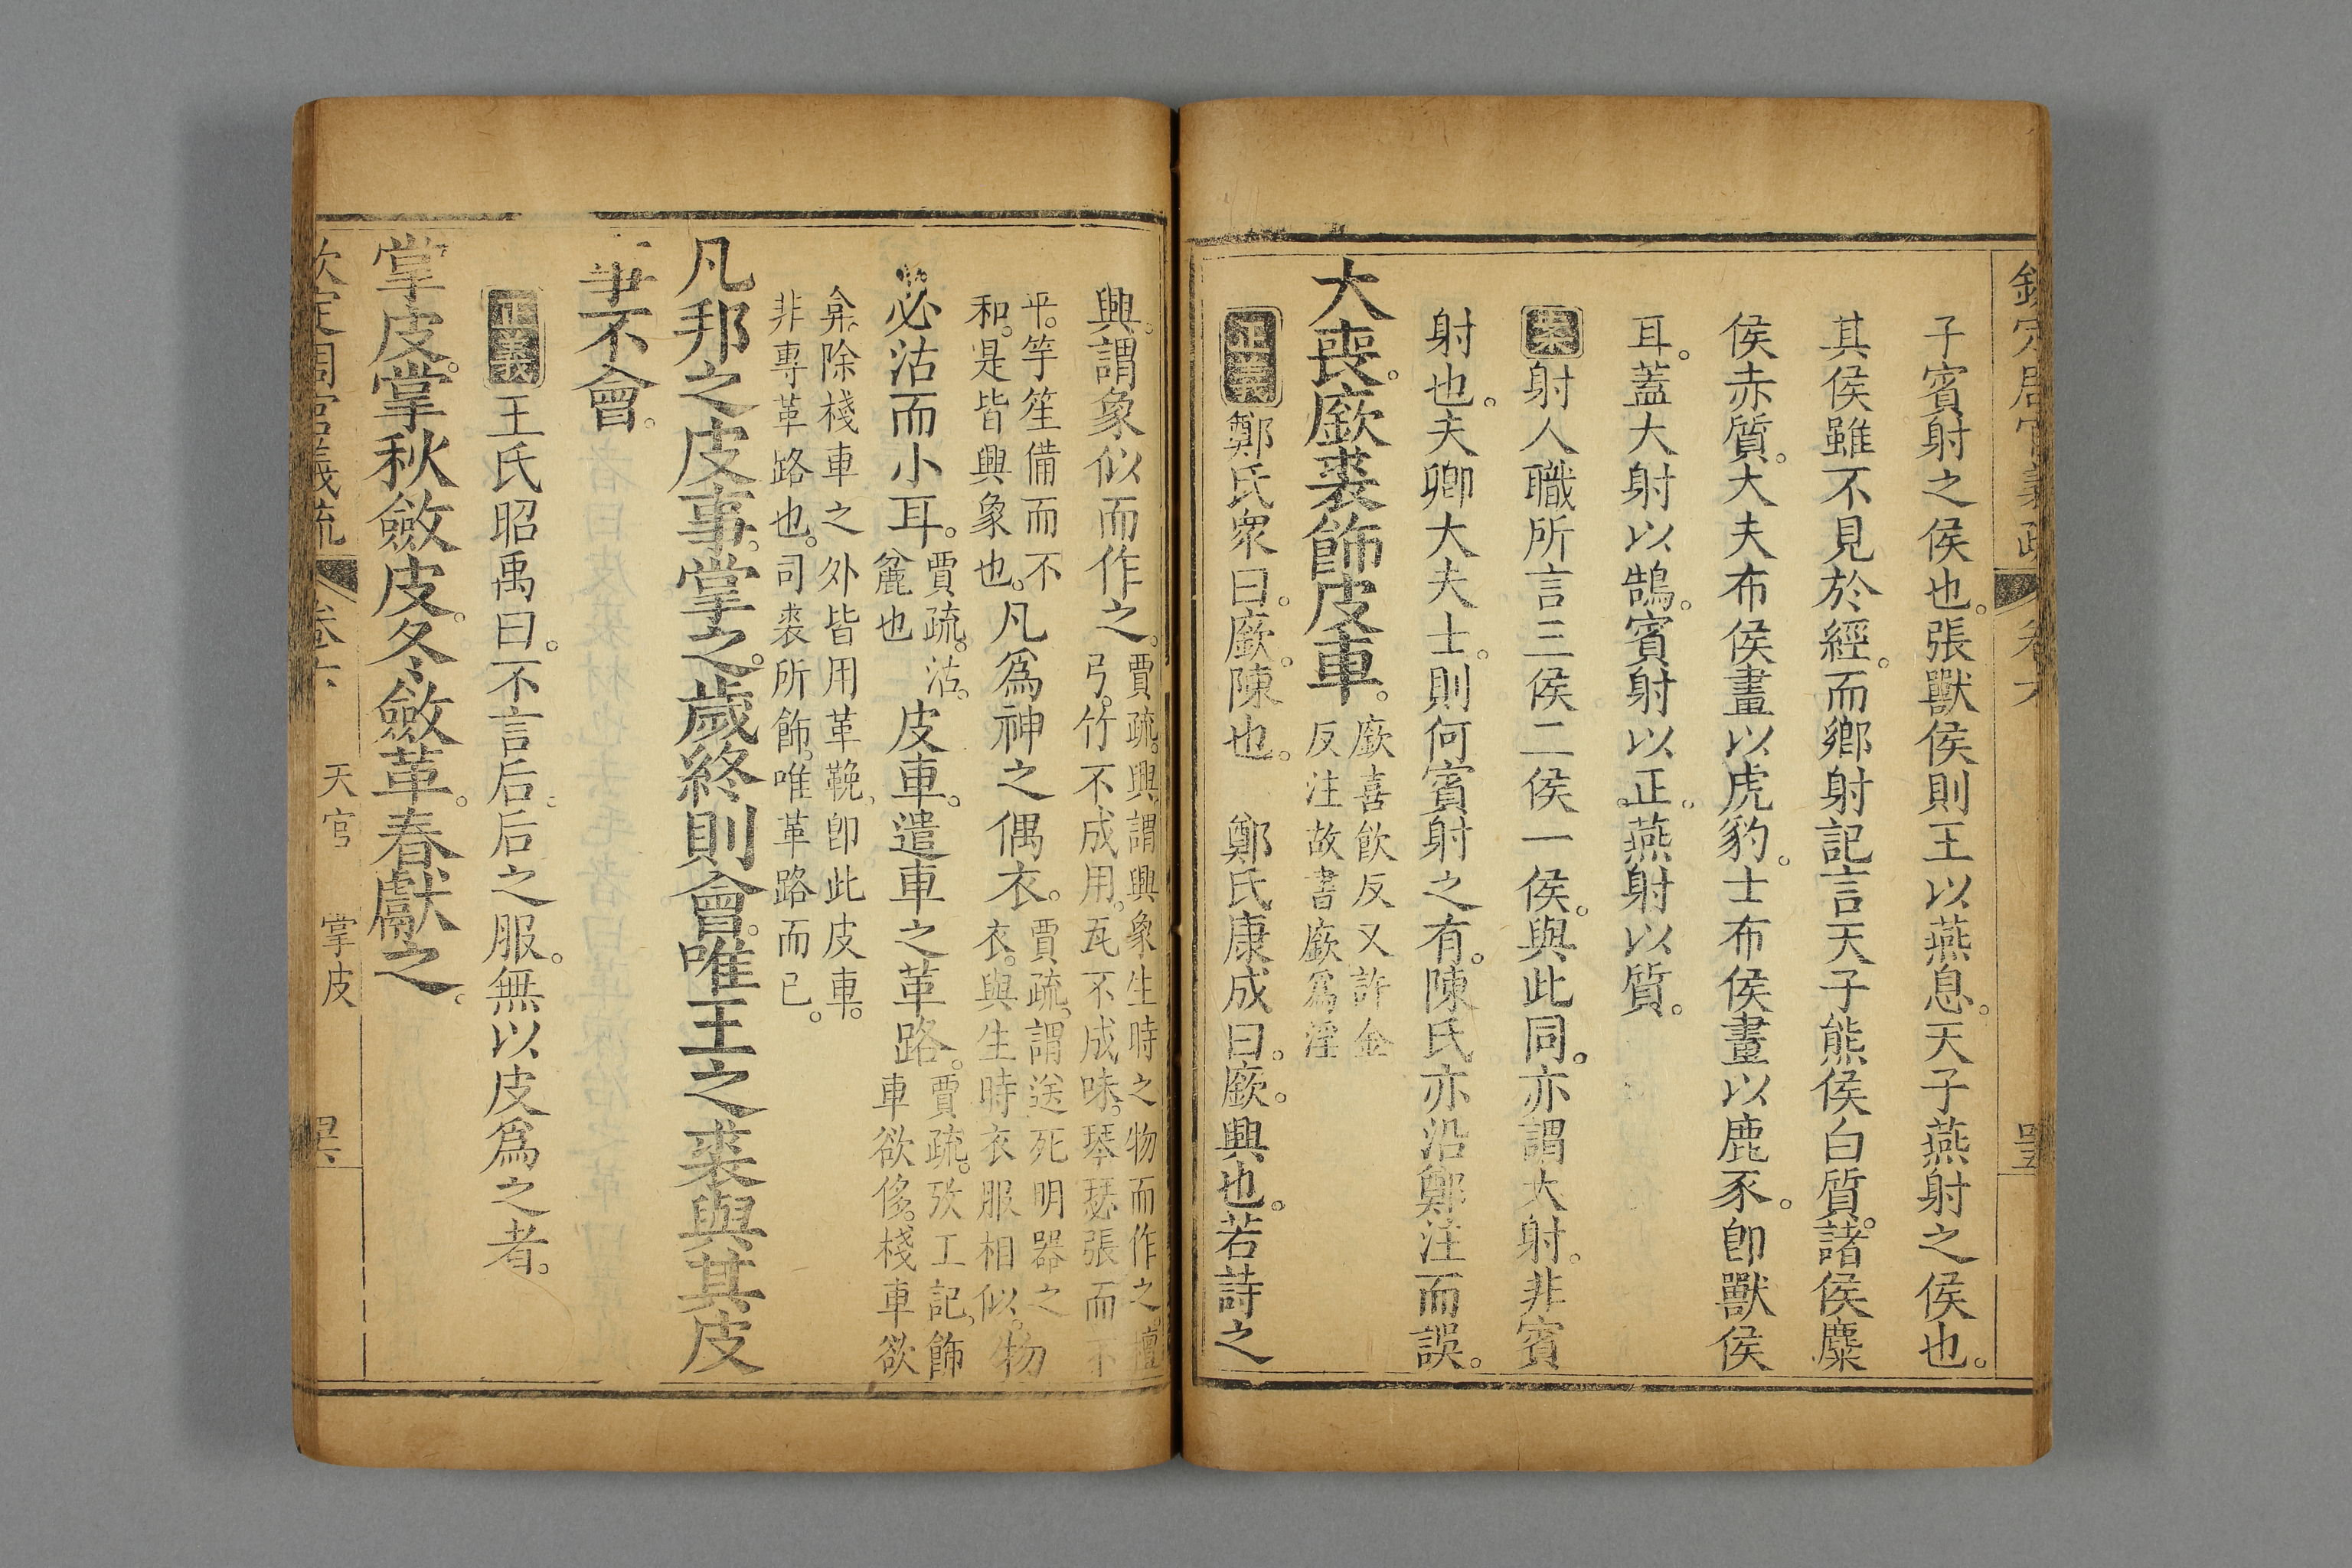 欽定周官義疏 卷六 罡
子賓射之侯也。張獸侯則王以燕息。天子燕射之侯也。
其侯雖不見於經。而鄉射記言天子熊侯白質。諸侯麋
侯赤質。大夫布侯畫以虎豹。士布侯畫以鹿豕。卽獸侯
耳。蓋大射以鵠。賓射以正。燕射以質。
案射人職所言三侯二侯一侯。與此同。亦謂大射。非賓
射也。夫卿大夫士。則何賓射之有。陳氏亦沿鄭注而誤。
大喪。廞裘飾皮車。
廞喜飮反又許金
反注故書廞爲淫
正義鄭氏衆曰。廞。陳也。 鄭氏康成曰。廞。興也。若詩之
興。謂象似而作之。
賈疏。興謂興象生時之物而作之。檀
弓。竹不成用。瓦不成味。琴瑟張而不
平。竽笙備而不
和。是皆興象也。
凡爲神之偶衣。
賈疏。謂送死明器之
衣。與生時衣服相似。
物
必沽而小耳。
賈疏。沽。
麄也
皮車。遣車之革路。
賈疏。攷工記。飾
車欲侈。棧車欲
弇。除棧車之外皆用革鞔。卽此皮車。
非專革路也。司裘所飾。唯革路而已。
凡邦之皮事。掌之。歲終則會。唯王之裘與其皮
事不會。
正義王氏昭禹曰。不言后。后之服。無以皮爲之者。
掌皮。掌秋斂皮。冬斂革。春獻之。
欽定周官義疏 卷六 天官 掌皮